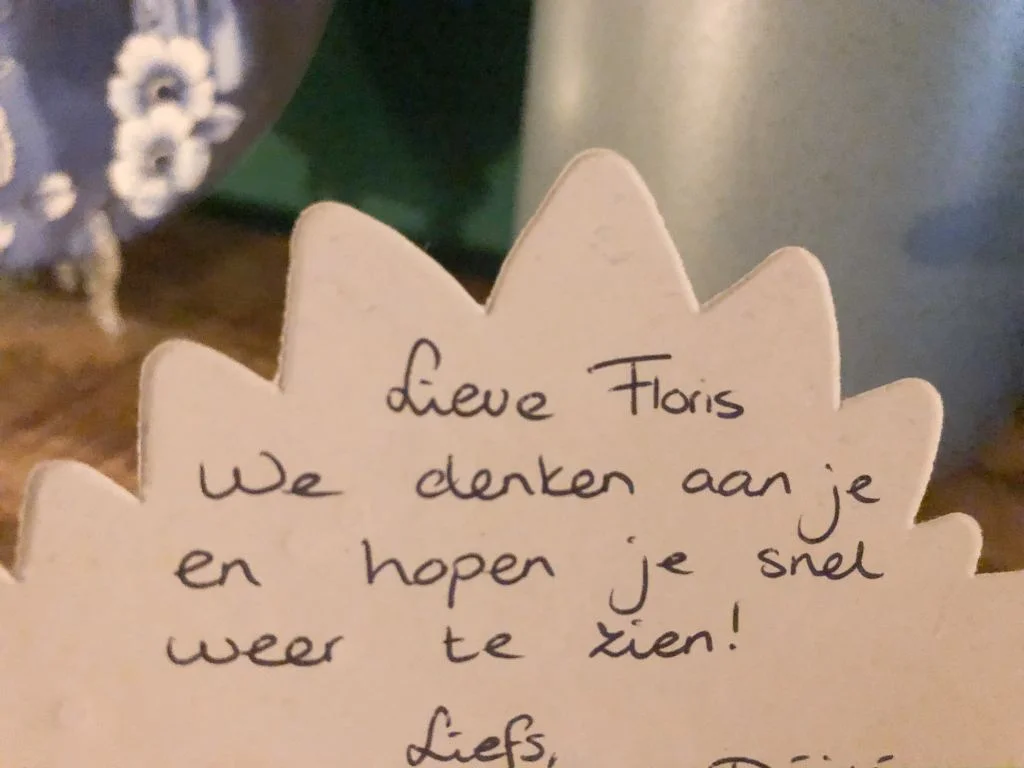 Lieve Floris
We denken aan je
en hopen je snel
weer te zien!
Liefs,